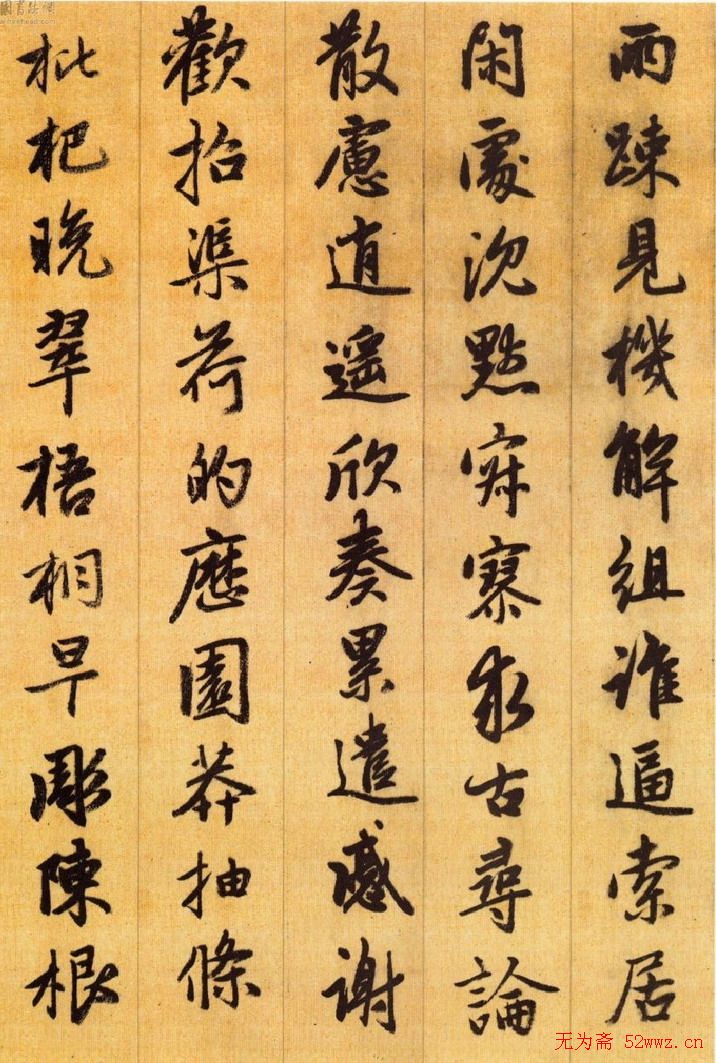 両踈見機解組誰逼索居
閑處沉默寂寥求古尋論
散慮逍遥欣奏累遣慼謝
歡招渠荷的歷園莽抽條
枇杷晚翠梧桐早彫陳根
无为斋 52wwz.cn